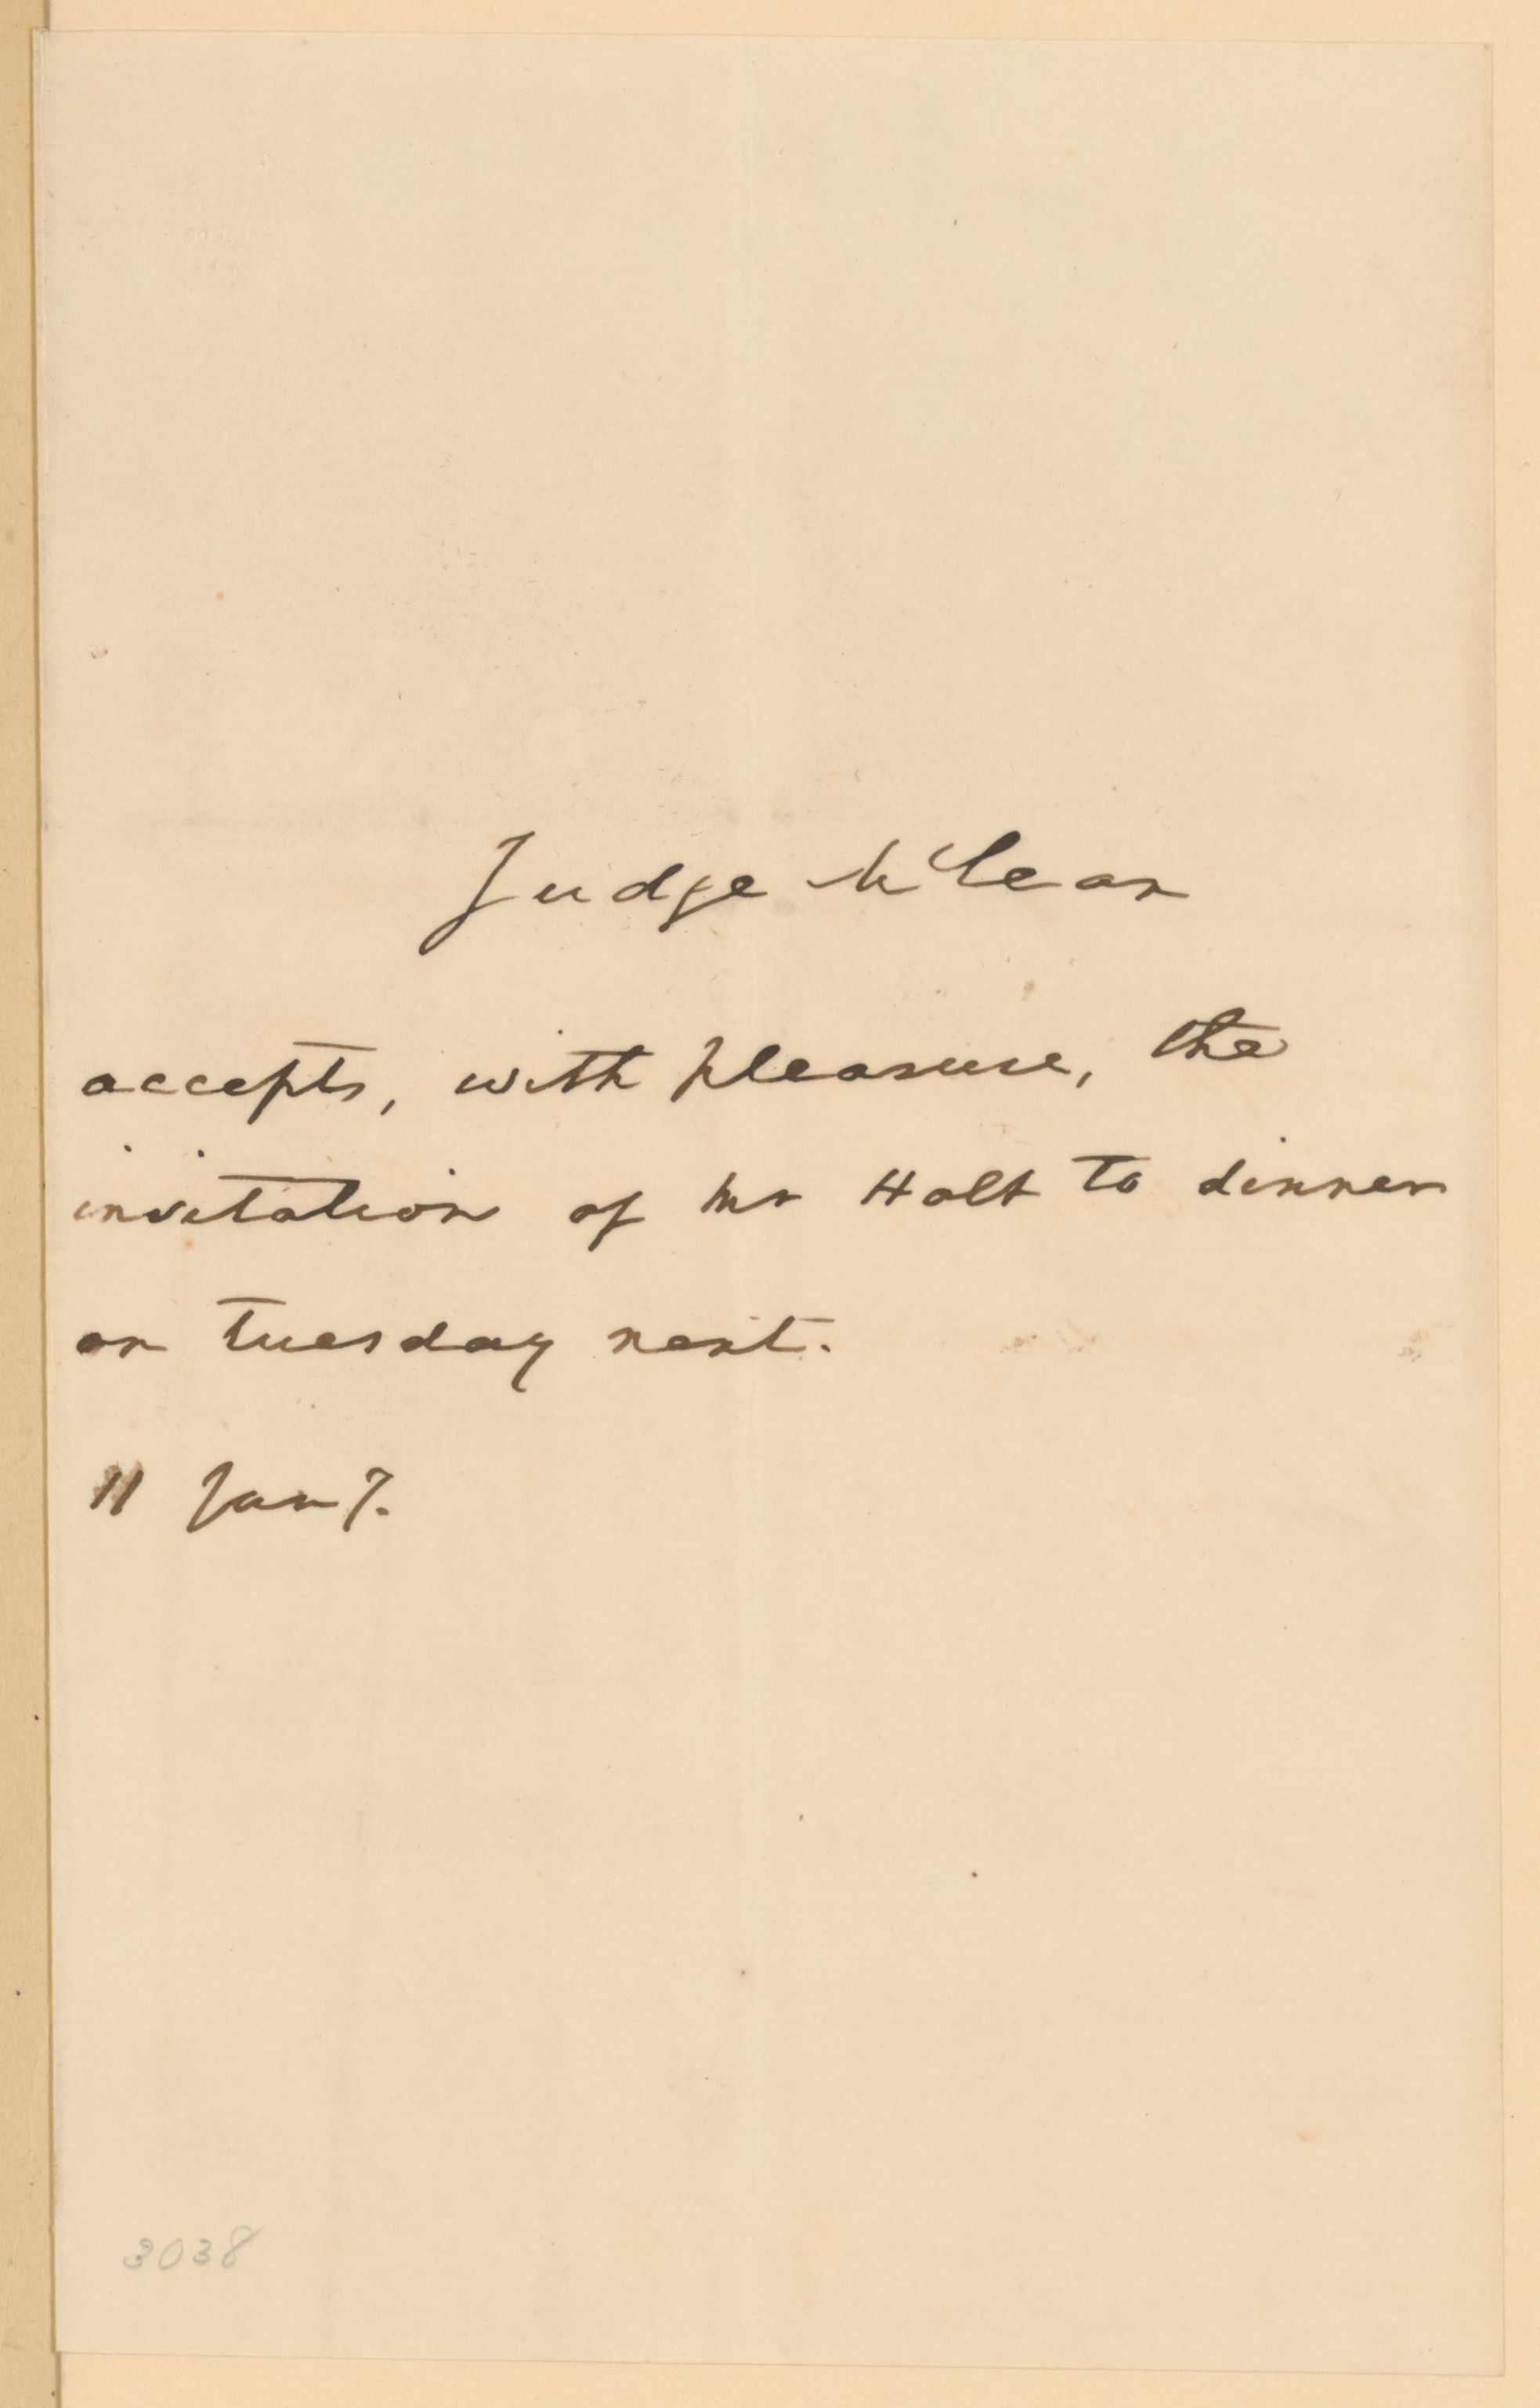 Judge McLean
accepts, with pleasure, the
invitation of Mr Holt to dinner
on Tuesday next.
11 Jany.
3038